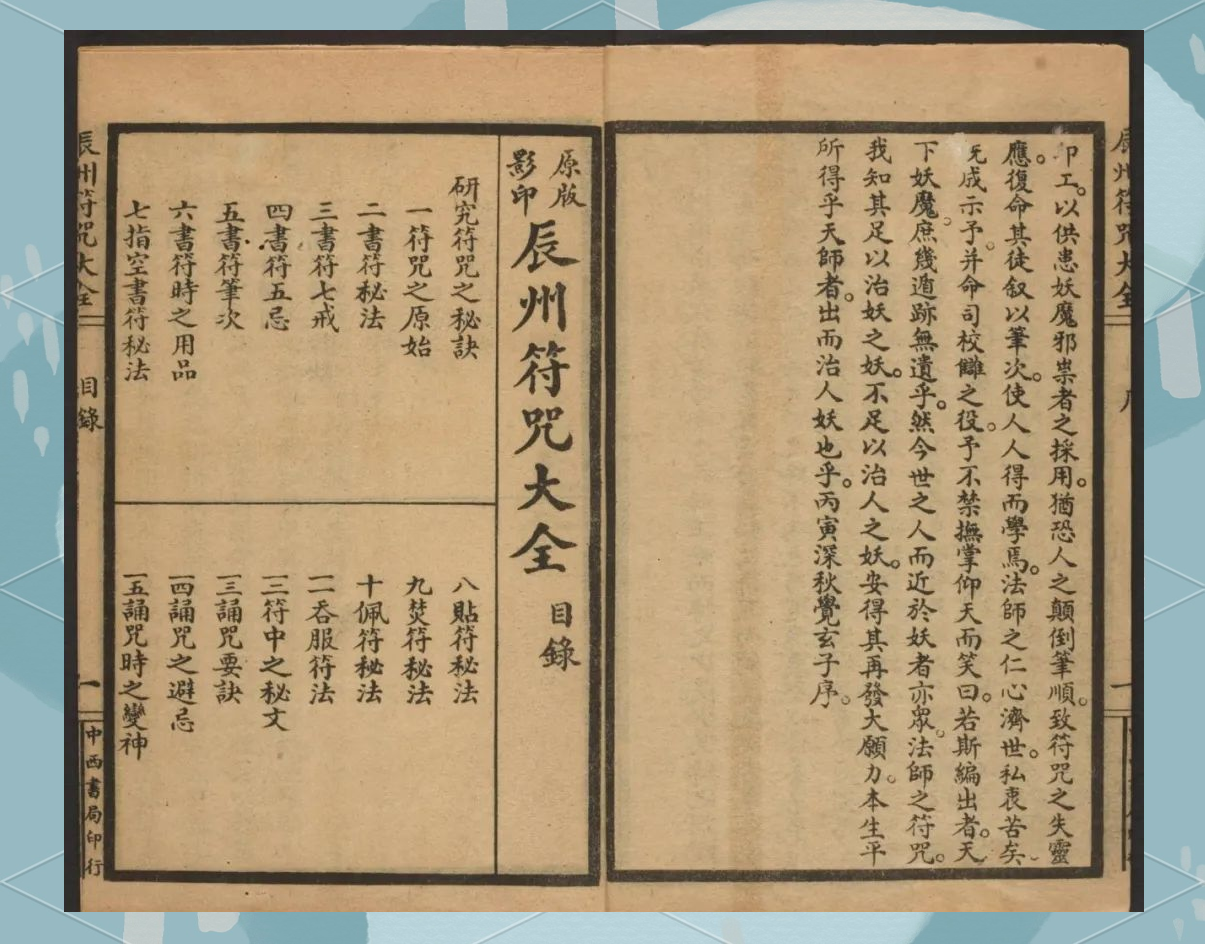 卩工。以供患妖魔邪祟者之採用。猶恐人之顛倒筆順。致符咒之失靈
應。復命其徒叙以筆次。使人人得而學焉。法師之仁心濟世。私衷苦矣。
旣成示予。并命司校讎之役。予不禁撫掌仰天而笑曰。若斯編出者。天
下妖魔。庶幾遁跡無遺乎。然今世之人而近於妖者亦眾。法師之符咒。
我知其足以治妖之妖。不足以治人之妖。安得其再發大願力。本生平
所得乎天師者。出而治人妖也乎。丙寅深秋覺玄子序。
辰州符咒大全
原版
影印
辰州符咒大全
目錄
研究符咒之秘訣
一符咒之原始
二書符秘法
三書符七戒
四書符五忌
五書符筆次
六書符時之用品
七指空書符秘法
八貼符秘法
九焚符秘法
十佩符秘法
一一吞服符法
一二符中之秘文
一三誦咒要訣
一四誦咒之避忌
一五誦咒時之變神
辰州符咒大全
目錄
一
中西書局印行